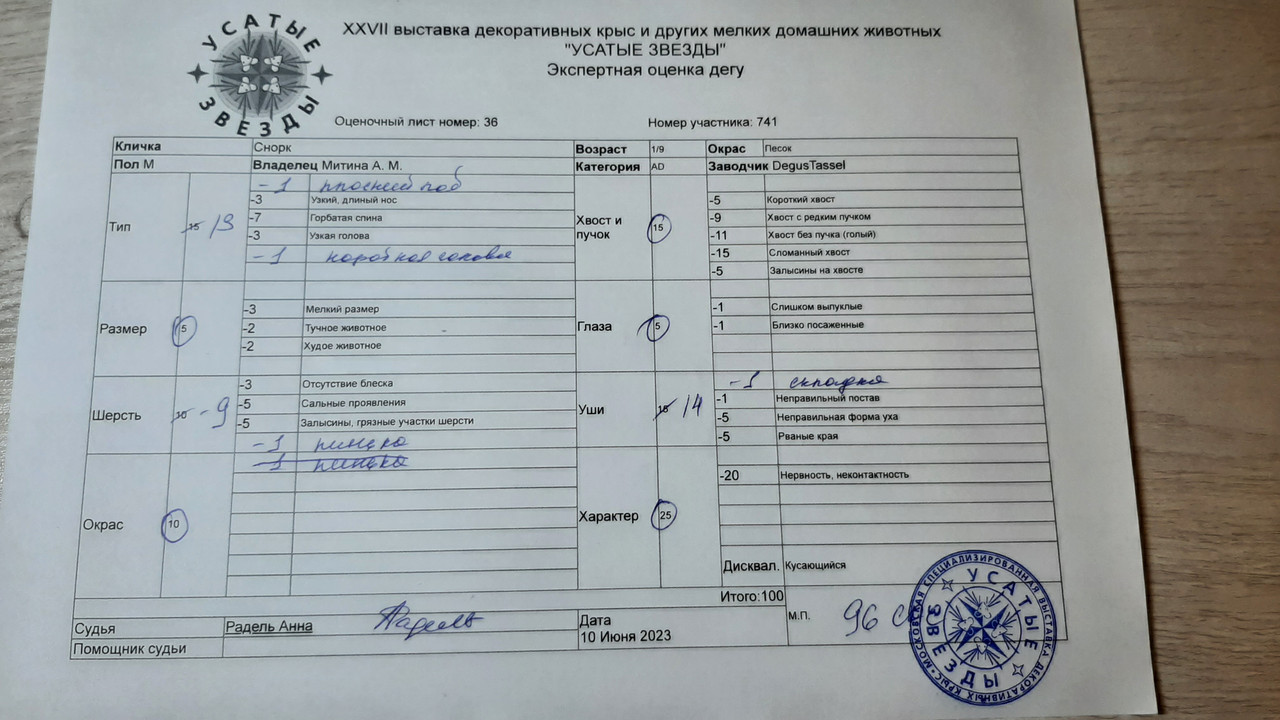 УСАТЫЕ
ЗВЕЗДЫ
XXVII выставка декоративных крыс и других мелких домашних животных
"УСАТЫЕ ЗВЕЗДЫ"
Экспертная оценка дегу
Оценочный лист номер: 36 Номер участника: 741
Кличка Снорк Возраст 1/9 Окрас Песок
Пол М Владелец Митина А. М. Категория AD Заводчик DegusTassel
Тип 15 13
-1 плоский лоб
-3 Узкий, длиный нос
-7 Горбатая спина
-3 Узкая голова
-1 голова
Хвост и пучок 15
-5 Короткий хвост
-9 Хвост с редким пучком
-11 Хвост без пучка (голый)
-15 Сломанный хвост
-5 Залысины на хвосте
Размер 5
-3 Мелкий размер
-2 Тучное животное
-2 Худое животное
Глаза 5
-1 Слишком выпуклые
-1 Близко посаженные
Шерсть 10 - 9
-3 Отсутствие блеска
-5 Сальные проявления
-5 Залысины, грязные участки шерсти
-1 линька
Уши 15 14
-1 складка
-1 Неправильный постав
-5 Неправильная форма уха
-5 Рваные края
Окрас 10
-1 линька
Характер 25
-20 Нервность, неконтактность
Дисквал. Кусающийся
Итого:100
Судья Радель Анна Радель
Дата
10 Июня 2023
М.П. 96
Помощник судьи
МОСКОВСКАЯ СПЕЦИАЛИЗИРОВАННАЯ ВЫСТАВКА ДЕКОРАТИВНЫХ КРЫС
УСАТЫЕ
ЗВЕЗДЫ